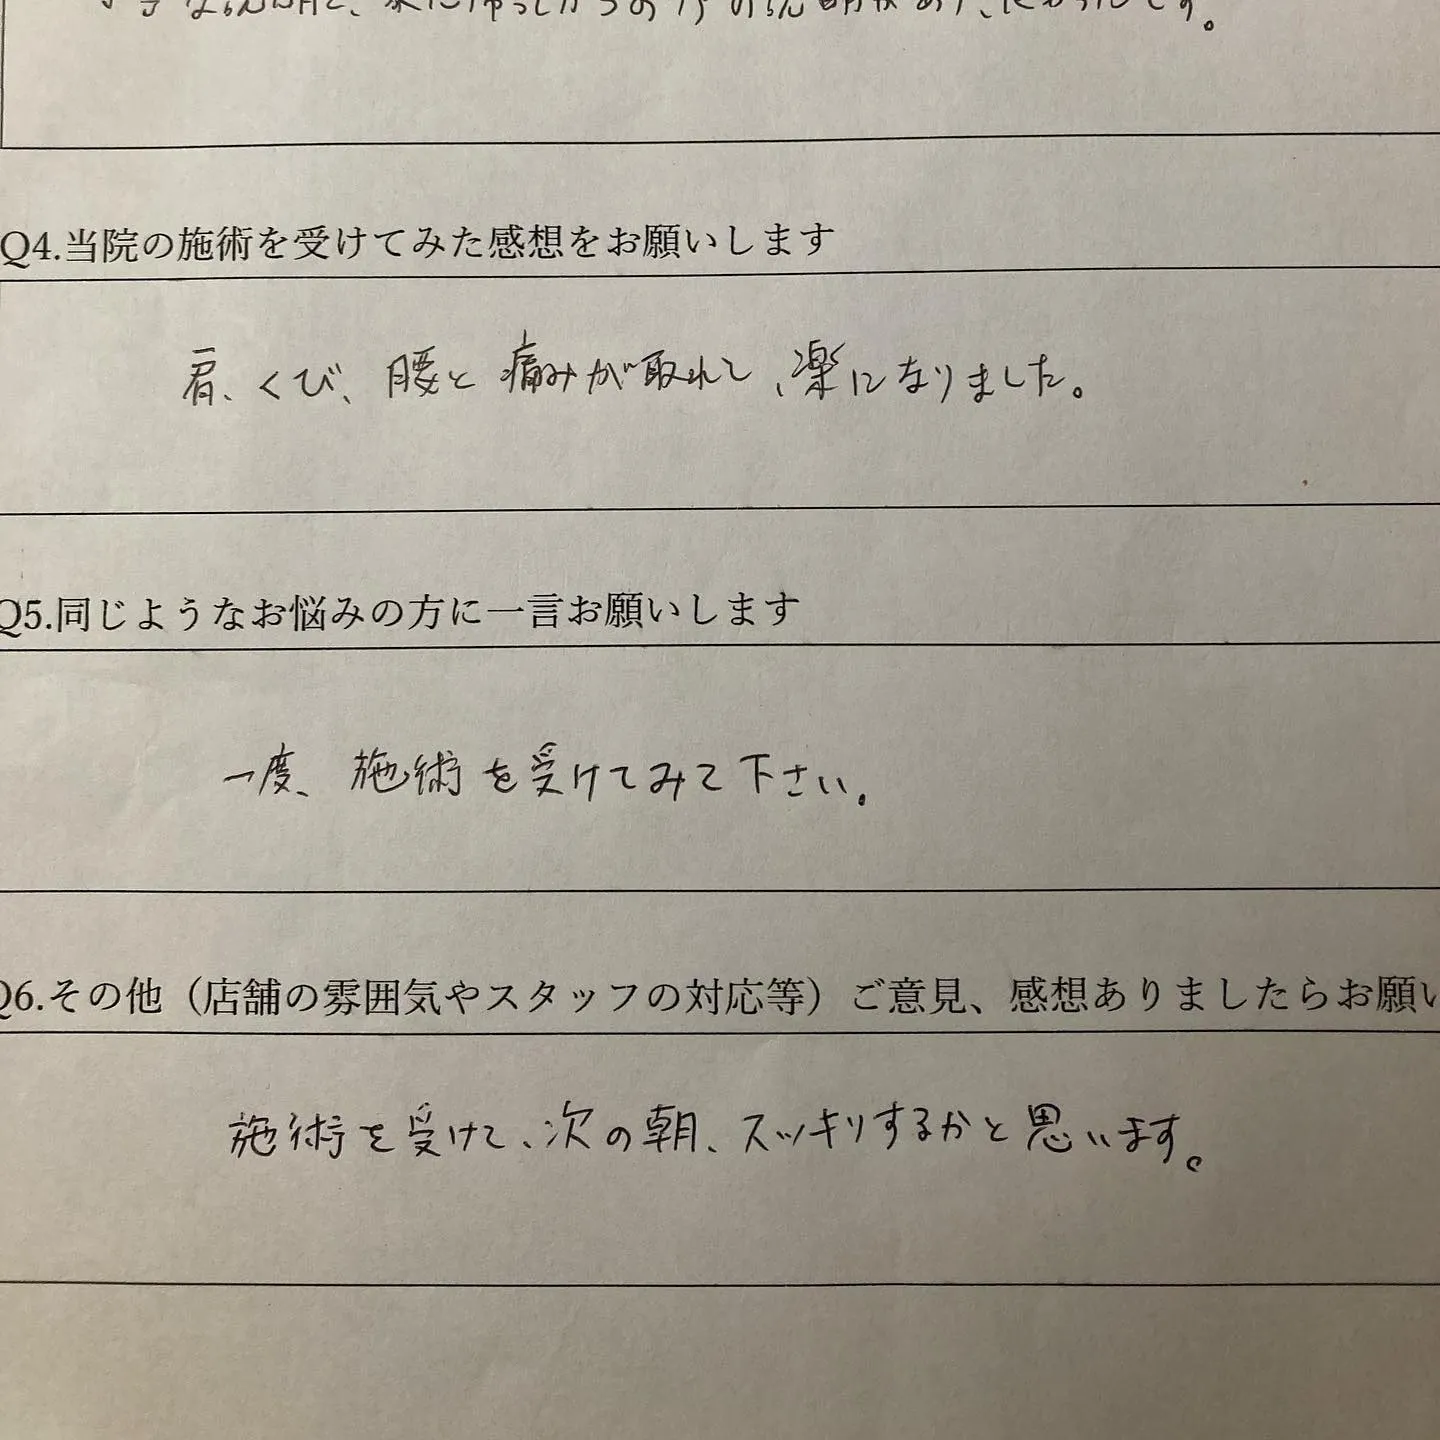 な説明と、家に帰ってからのケアの説明があったからです。
Q4.当院の施術を受けてみた感想をお願いします
肩、くび、腰と痛みが取れて、楽になりました。
Q5.同じようなお悩みの方に一言お願いします
一度、施術を受けてみて下さい。
Q6.その他（店舗の雰囲気やスタッフの対応等）ご意見、感想ありましたらお願い
施術を受けて、次の朝、スッキリするかと思います。